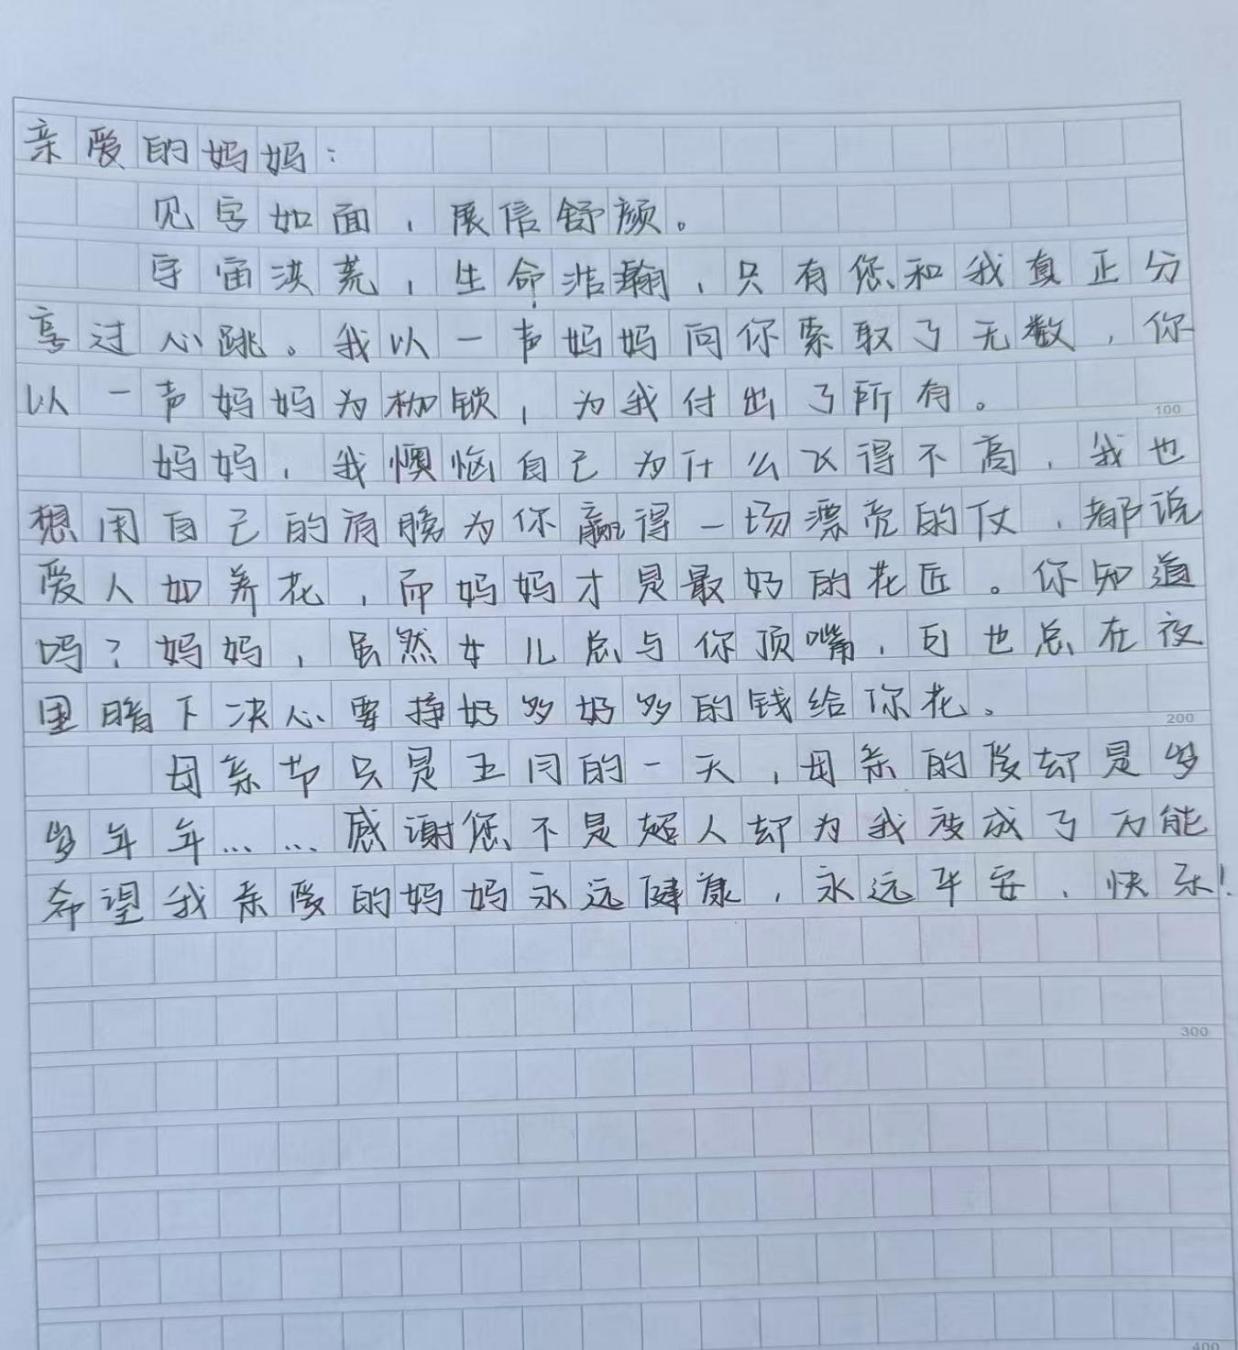 亲爱的妈妈：
见字如面，展信舒颜。
宇宙洪荒，生命浩瀚，只有您和我真正分
享过心跳。我以一声妈妈向你索取了无数，你
以一声妈妈为枷锁，为我付出了所有。
100
妈妈，我懊恼自己为什么飞得不高，我也
想用自己的肩膀为你赢得一场漂亮的仗，都说
爱人如养花，而妈妈才是最好的花匠。你知道
吗？妈妈，虽然女儿总与你顶嘴，可也总在夜
里暗下决心要挣好多好多的钱给你花。
200
母亲节只是五月的一天，母亲的爱却是岁
岁年年……感谢您不是超人却为我变成了万能
希望我亲爱的妈妈永远健康，永远平安、快乐！
300
400